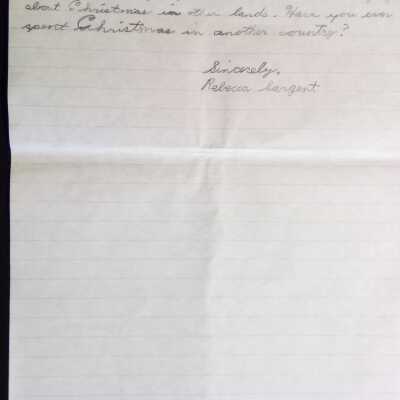 about Christmas in other lands. Have you ever
spent Christmas in another country?
Sincerely,
Rebecca Sargent